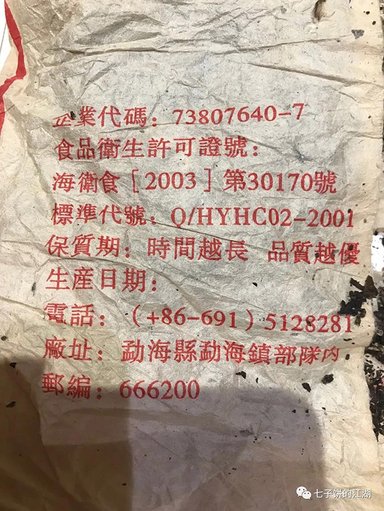 企業代碼：73807640-7
食品衛生許可證號：
海衛食［2003］第30170號
標準代號：Q/HYHC02-2001
保質期：時間越長 品質越優
生産日期：
電話：（+86-691）5128281
廠址：勐海縣勐海鎮部隊内
郵編：666200
七子饼的江湖